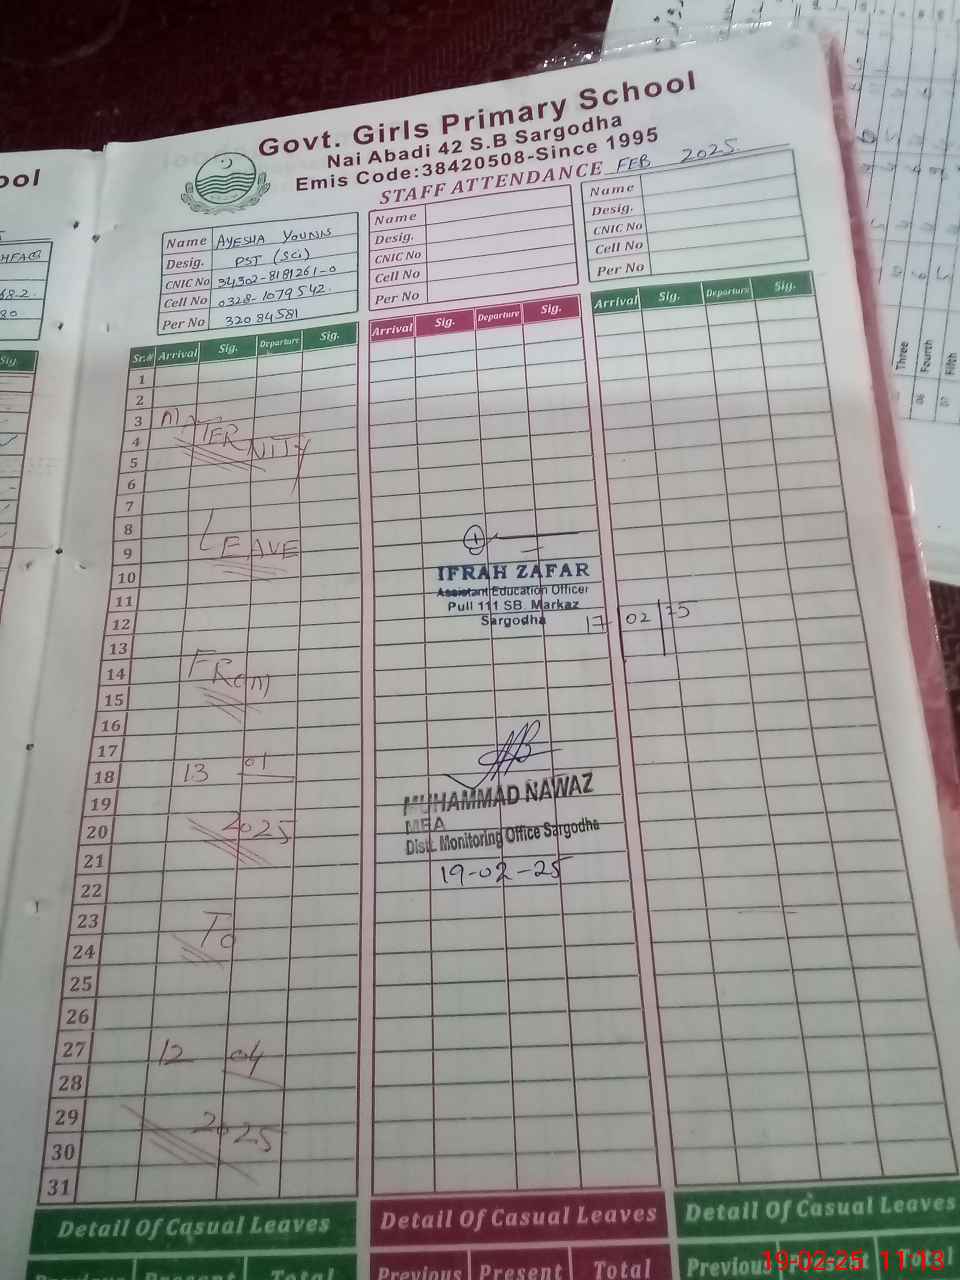 Govt. Girls Primary School
Nai Abadi 42 S.B Sargodha
Emis Code:38420508-Since 1995
STAFF ATTENDANCE FEB 2025
ool
Name AYESHA YOUNIS
Desig. PST (Sci)
CNIC No 34302-8181261-0
Cell No 0328-1079542.
Per No 32084581
Name
Desig.
CNIC No
Cell No
Per No
Name
Desig.
CNIC No
Cell No
Per No
68-2.
80
Sig.
Sr.# Arrival Sig. Departure Sig.
Arrival Sig. Departure Sig.
Arrival Sig. Departure Sig.
1
2
3
4
5
6
7
8
9
10
11
12
13
14
15
16
17
18
19
20
21
22
23
24
25
26
27
28
29
30
31
MATERNITY
LEAVE
FROM
13 01
2025
To
12 04
2025
IFRAH ZAFAR
Assistant Education Officer
Pull 111 SB Markaz
Sargodha
17/02/25
MUHAMMAD NAWAZ
MEA
Distt. Monitoring Office Sargodha
19-02-25
Three
06 Fourth
07 Fifth
Detail Of Casual Leaves
Detail Of Casual Leaves
Detail Of Casual Leaves
Previous Present Total
Previous Present Total
Previous Present Total
19-02-25 11:13